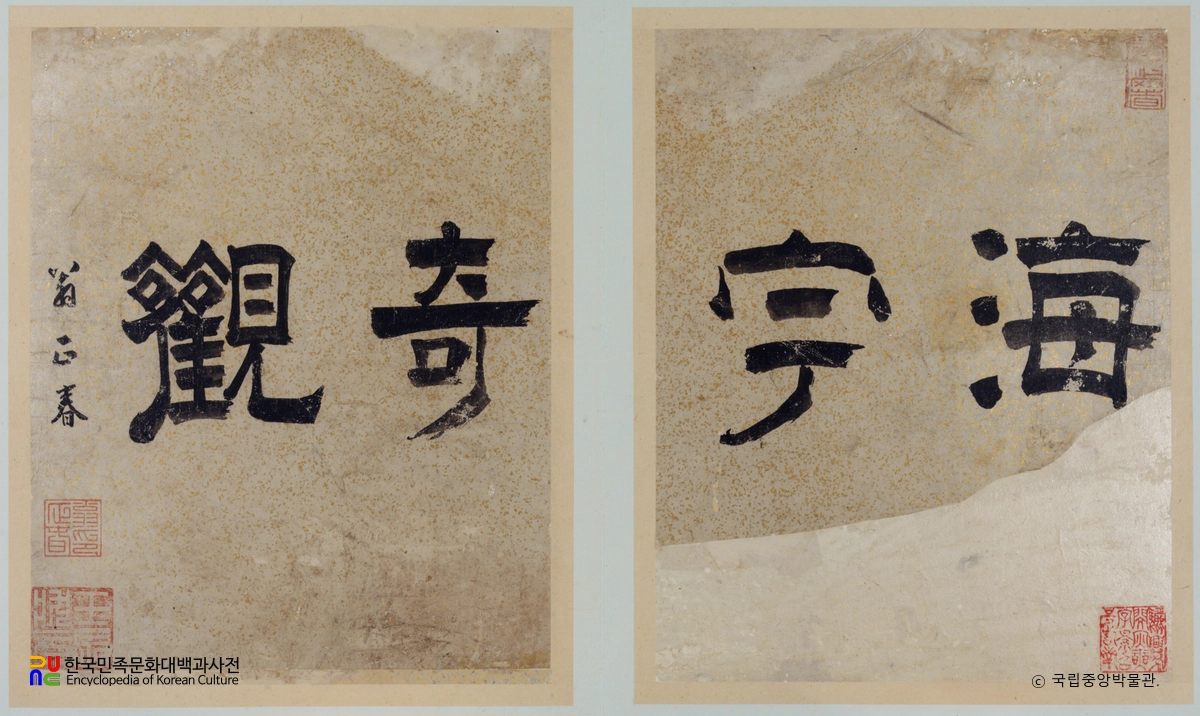 海宇
奇觀
翁正春
한국민족문화대백과사전
Encyclopedia of Korean Culture
ⓒ 국립중앙박물관.